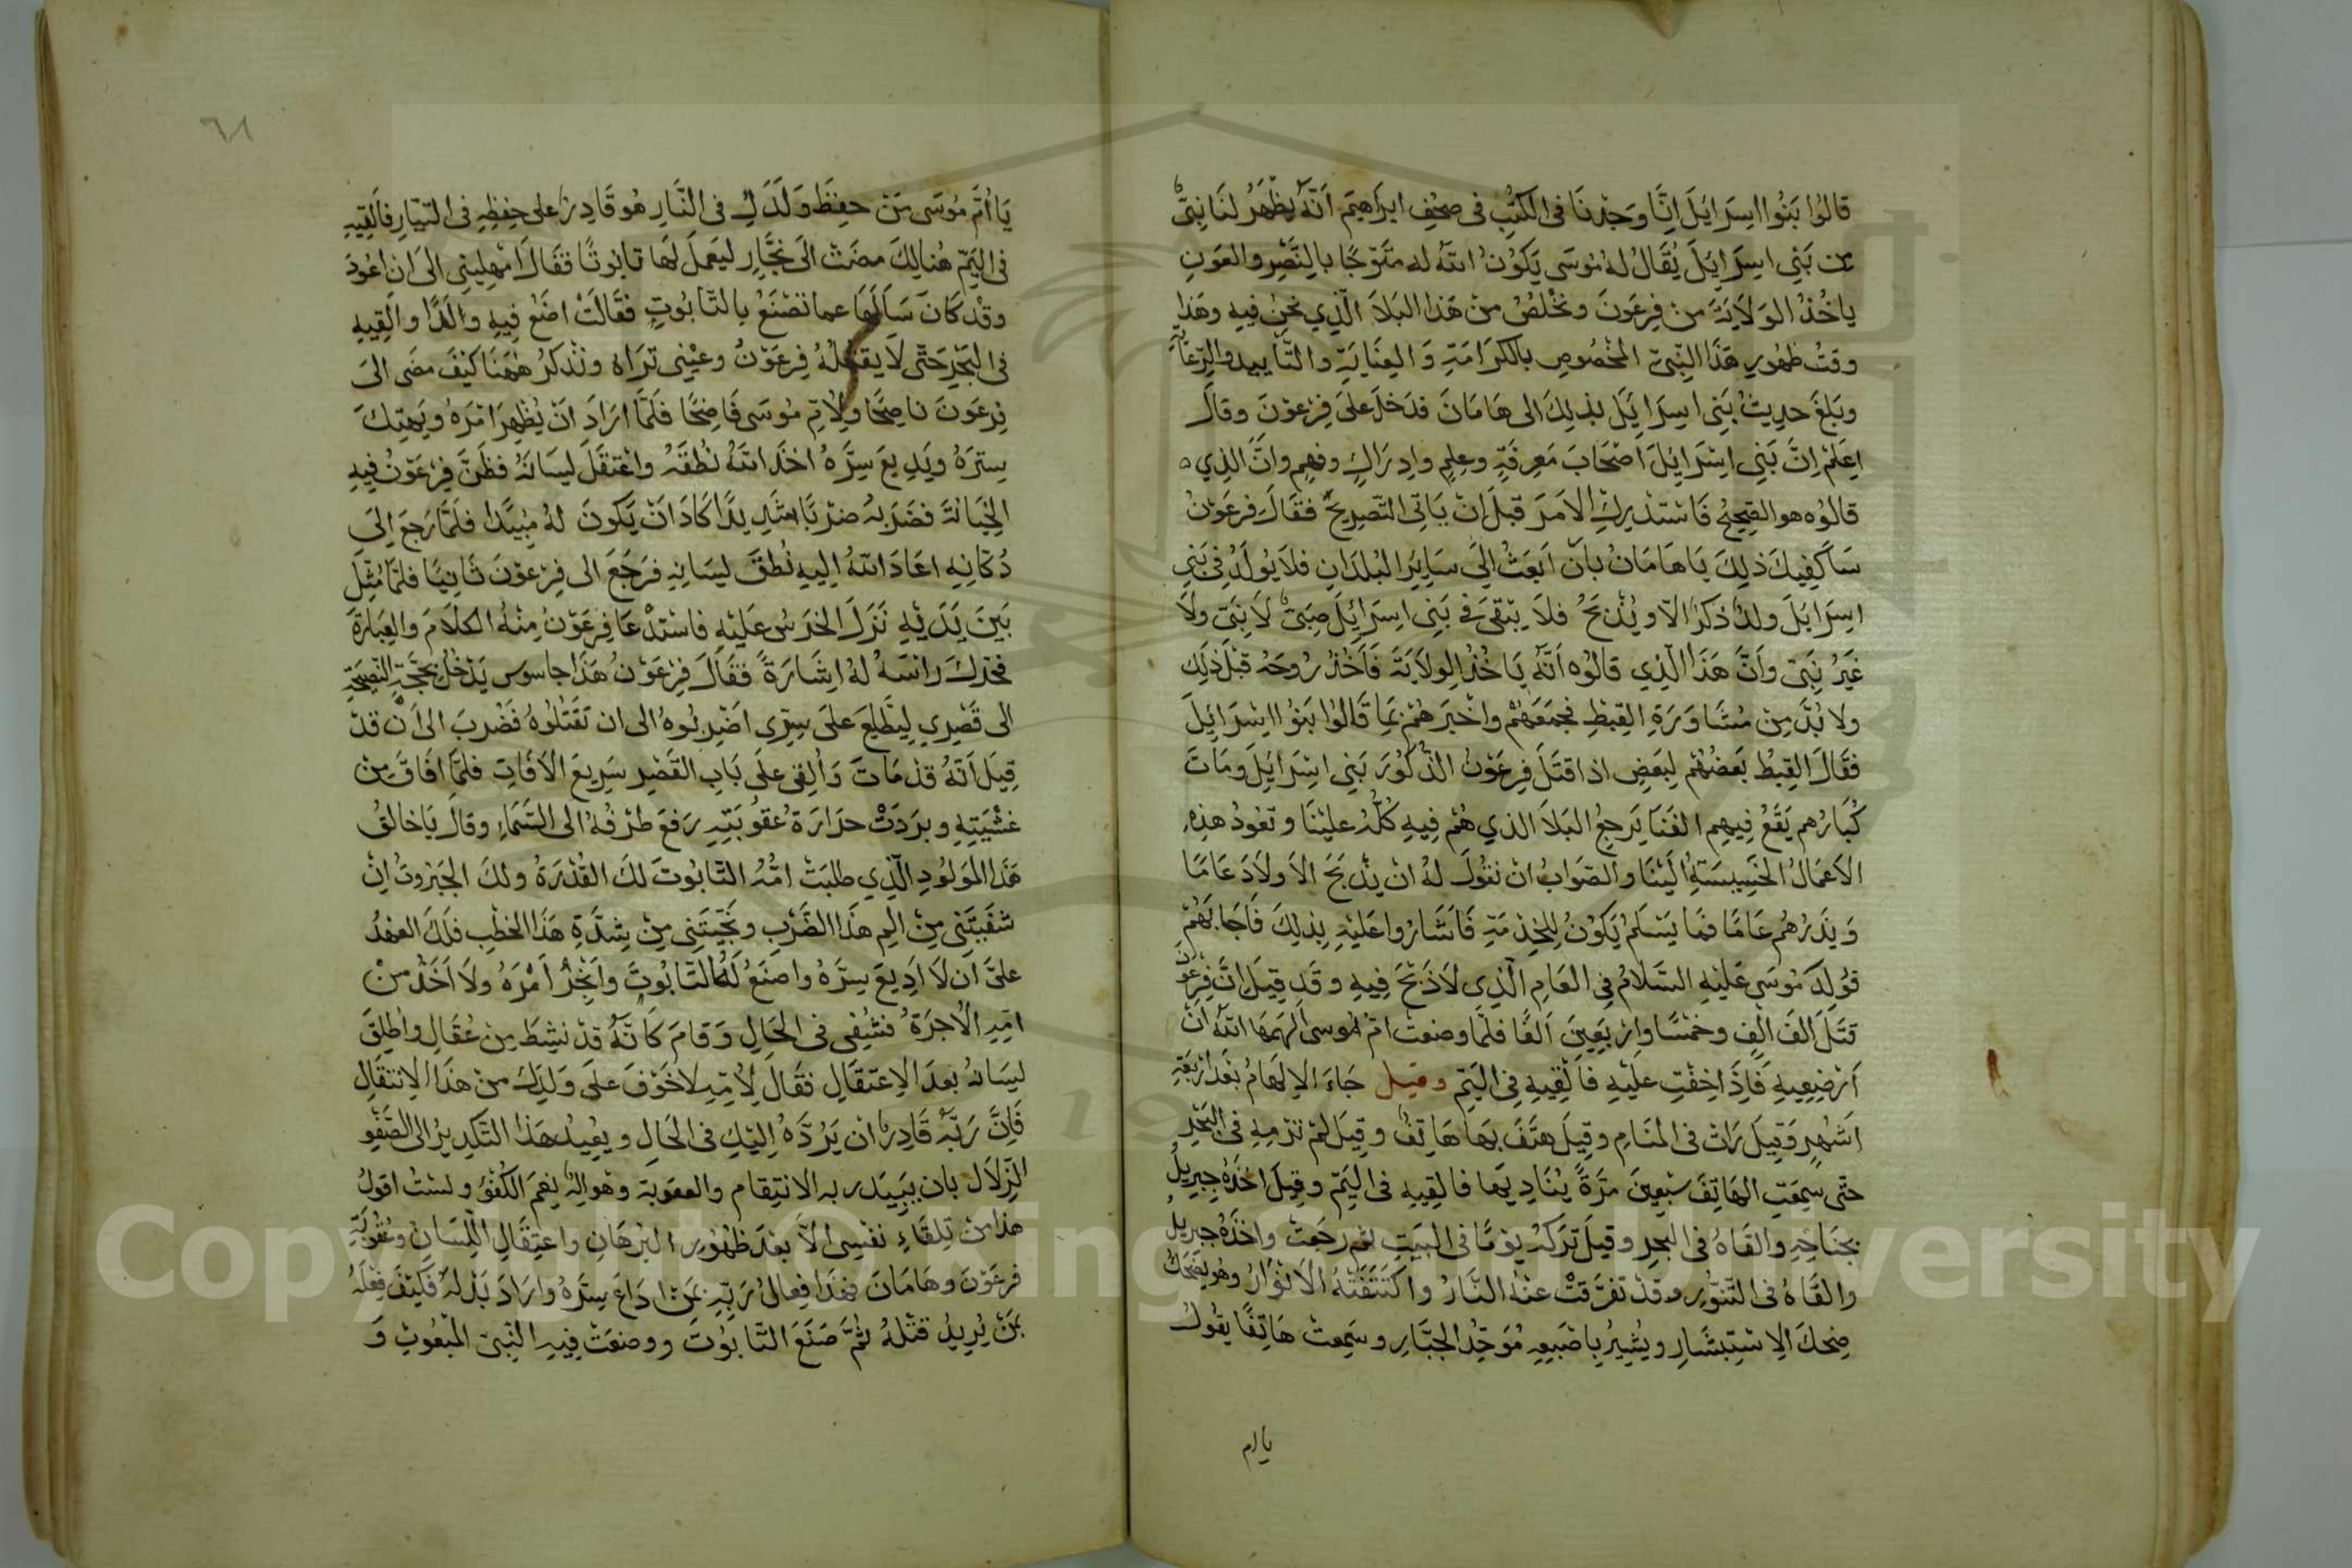 قالُوا بَنُوا اسِرَايُلَ انَّا وَجَدْنَا فى الكتُبِ فى صحُفِ ابرَاهِيمَ اَنَّهُ يَظْهَرُ لَنَا نبىٌّ
من بَنِى اسِرَايِلَ يُقَالُ لهُ مُوسَى يَكُونُ اللهُ له مُتَوِّجًا بالنَّصْرِ والعَونِ
ياخُذُ الوَلَايَةَ منْ فِرعَونَ ونخْلصُ من هَذا البَلَا الَّذِي نحنُ فيه وهَذا
وقتُ ظهُورِ هَذَا النَّبِىّ المخْصُوصِ بالكرَامَةِ وَالعِنَايَةِ والتَّأييد والرِّعَايَةِ
وبَلَغَ حدِيثُ بَنِى اسِرَايِلَ بذلِكَ الى هَامَانَ فدَخلَ علىَ فِرْعوْنَ وقالَ
اعلَمْ انَّ بَنِى اسْرَايِلَ اصْحَابَ مَعرِفَةٍ وعِلمٍ وادِرَاكٍ وفهمٍ وانَّ الَّذِي
قالوُه هو الصَّحِيحُ فَاستَدْرِكِ الامَرَ قبلَ انْ يَاتِى التَّصرِيحُ فقَالَ فرعَوْنُ
سَاكفِيكَ ذلِكَ يَا هَامَانُ بانْ اَبعَثُ الىَ سَايِرِ البُلدَانِ فلاَ يُولَدُ فى بَنِى
اسِرَايَلَ ولدٌ ذكرٌ الاّ ويُذْبَحُ فلاَ يبْقىَ فى بَنِى اسِرَايُلَ صبَىٌّ لَا نبَىّ ولاَ
غَيرُ نَبىّ وانَّ هَذَا الَّذِي قالُوه اَنَّهُ يَاخُذُ الوِلاَيَةَ فَآخُذُ رُوحَهُ قبْلَ ذلِكَ
ولا بُدَّ مِنْ مُشَاوَرَةِ القِبْطِ فجمَعَهُمْ واخْبَرَهُمْ بمَا قَالوُا بَنوُا اسْرَايِلَ
فقَالَ القِبْطُ بَعضُهُم لبَعضٍ اذا قتَلَ فِرعَوْنُ الذُّكوُرَ بَنِى اسْرَايِلَ ومَاتَ
كُبَارُهم يَقَعُ فيهِم الفَنَا يَرجعُ البَلَا الذي هُمْ فِيهِ كُلُّهُ عليْنَا وتعُودُ هذِهِ
الاَعمَالُ الخَسِيسَةُ اليْنَا والصَّوابُ انْ نقُولَ لهُ انْ يذْبَحَ الاَولاَدَ عَامًا
وَيذَرْهُم عَامًا فمَا يَسْلمُ يَكوُنُ للخِدْمَةِ فَاَشَارُوا عليْهِ بذلِكَ فَاَجَابَهُمْ
فوُلِدَ مُوسَى عَليْهِ السَّلامُ فى العَامِ الَّذِى لاَ ذَبْحَ فِيهِ وقَد قِيلَ انَّ فِرعَوْنَ
قتَلَ الفَ الفٍ وخمْسًا وارْبَعِينَ اَلفًا فلمَّا وضعتْ امّ موُسى اَلهَمهَا اللهُ انْ
اَرْضِعِيهِ فَاِذَا خِفْتِ عليْهِ فَاَلْقِيهِ فِى اليَمّ وقيل جَاءَ الاِلهَامُ بعْدَ ارْبَعَةِ
اَشهُرٍ وقِيلَ رَاتْ فى المنَامِ وقِيلَ هتَفَ بهَا هَاتِفٌ وقِيلَ لمْ ترْمِهِ فى البَحْرِ
حتَّى سمِعَتِ الهَاتِفَ سَبْعِينَ مَرَّةً يُنَادِيهَا فالقِيهِ فى اليَمّ وقِيلَ اخَذَهُ جِبرِيلُ
بجنَاحِهِ وَالقَاهُ فى البحرِ وقيلَ ترَكتْهُ يوْمًا فى البَيتِ ثم رجَعتْ واخَذَهُ جبريل
والقَاهُ فى التَّنوُّرِ وقدْ تفرَّقتْ عنهُ النَّارُ واكتَنَفَتْهُ الاَنْوَارُ وهُو يضحَكُ
ضِحكَ الاِسْتِبشَارِ ويُشِيرُ باصْبَعِهِ مُوَحّدًا لجبَّارِ وسَمِعتْ هَاتِفًا يقُولُ
يا ام
٦٨
يَا اُمَّ مُوسَى مَنْ حفِظَ وَلَدَكِ فى النَّارِ هُو قَادِرٌ على حِفِظِهِ فى التيَّارِ فاَلقِيهِ
فى اليَمّ هُنالِكَ مضَتْ الىَ نجَّارٍ ليَعمَلَ لهَا تابوتًا فقَالَ امْهِلِينِى الى ان اعُودَ
وقدْ كَانَ سَاَلهَا عما تصْنَعُ بالتَّابُوتِ فقَالتْ اضَعُ فِيهِ والَدًا والقِيهِ
فى البَحْرِ حَتَّى لَا يقتُلهُ فِرعَوْنُ وعيْنِى تَرَاهُ ونَذْكرُ ههُنَا كيْفَ مضَى الىَ
فِرعَونَ ناصِحًا ولِاُمِّ مُوسَى فَاضِحًا فلَمَّا ارَادَ انْ يُظْهِرَ امْرَهُ ويَهتِكَ
سِترَهُ ويَدِيعَ سِرَّهُ اخذَ اللهُ نُطْقَهُ واعْتقَلَ لِسَانَهُ فظَنَّ فِرْعَوْنُ فِيهِ
الخِيَانَةَ فضَرَبهُ ضرْبًا شَدِيدًا كَادَ اَنْ يَكونَ لهُ مُبِيدًا فلَمَّا رَجعَ اِلىَ
دُكَّانِهِ اعَادَ اللهُ اِليهِ نُطقَ لسَانِهِ فرَجَعَ الى فِرْعَوْنَ ثَانِيًا فلمَّا مُثّلَ
بَينَ يَدَيْهِ نَزَلَ الخرَسُ عَليْهِ فَاستدْعَا فِرعَوْنُ مِنْهُ الكلَامَ والعِبَارَةَ
فحَرَّكَ رَاْسَهُ لهُ اشَارَةً فقَالَ فِرْعَوْنُ هَذَا جاسوس يَدْخُلُ بحُجَّةِ النَّصِيحَةِ
الى قَصْرِي لِيَطَّلِعَ علىَ سِرِّي اضْرِبُوهُ الى ان تَقْتلُوهُ فَضُربَ الى اَنْ قدْ
قِيلَ اَنَّهُ قدْ مَاتَ وَاُلقِى علَى بَابِ القَصْرِ سَرِيعَ الاَفَاتِ فلمَّا افَاقَ منْ
غشْيَتِهِ وبرَدَتْ حرَارَةُ عُقُوبَتِهِ رَفعَ طرْفهُ الى السَّمَاءِ وقالَ يَا خالقُ
هَذَا الموَلوُدِ الَّذِي طلبَتْ امُّهُ التَّابُوتَ لكَ القُدْرَةُ ولكَ الجَبَرُوتُ انْ
شفَيْتَنِى مِنْ الَمِ هذَا الضَّرْبِ ونجَّيْتَنِى مِنْ شِدَّةِ هَذَا الخطْبِ فلَكَ العهْدُ
علىَّ اَن لَا اَدِيعَ سِرَّهُ واصنَعُ لهُ التَّابُوتَ واُنْجِزُ اَمْرَهُ ولَا اَخَذْ منْ
امّهِ الاُجرَةَ فشُفِى فى الحَالِ وَقامَ كَانَّهُ قدْ نشِطَ مِنْ عُقَالٍ واُطلِقَ
لِسَانهُ بعدَ الاِعتِقَالِ فقَالَ لِاُمّهِ لا خَوْفَ علىَ وَلَدِكِ منْ هَذَا الاِنتقَالِ
فَاِنَّ رَبَّهُ قَادِرٌ انْ يَرُدَّهُ اِليْكِ فى الحَالِ ويعِيدُ هَذَا التَّكدِيرُ الى الصَّفْوِ
الزّلاَل بان يبيد ربه الانتِقام والعقوبة وهُو الهٌ نِعْمَ الكُفْؤُ ولستُ اقولُ
هذا منْ تِلقَاءِ نفْسِى الاَّ بعْدَ ظهُورِ البُرْهَانِ واعتِقَالِ اللِّسَانِ وعُقُوبَةِ
فرعَوْنَ وهَامَانَ فهَذَا فِعالُ رَبّهِ بمَنْ ادَاعَ سِرَّهُ وارَادَ بَذْلهُ فكَيْفَ فِعْلَهُ
بمَنْ يُرِيدُ قتْلهُ ثُمَّ صَنَعَ التَّابوُتَ ووضعَتْ فِيهِ النَّبِىّ المبْعُوثِ وَ